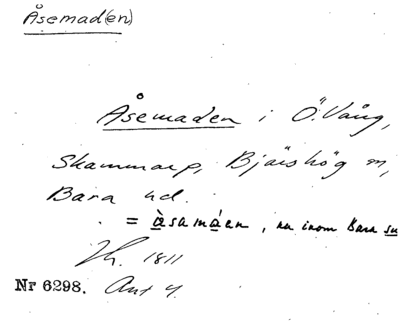 Åsemad(en)
Åsemaden i Ö. Vång,
Skammarp, Bjärshög m,
Bara hd.
= àsamáen, nu inom Bara su
1811
Nr 6298. Ant 4.